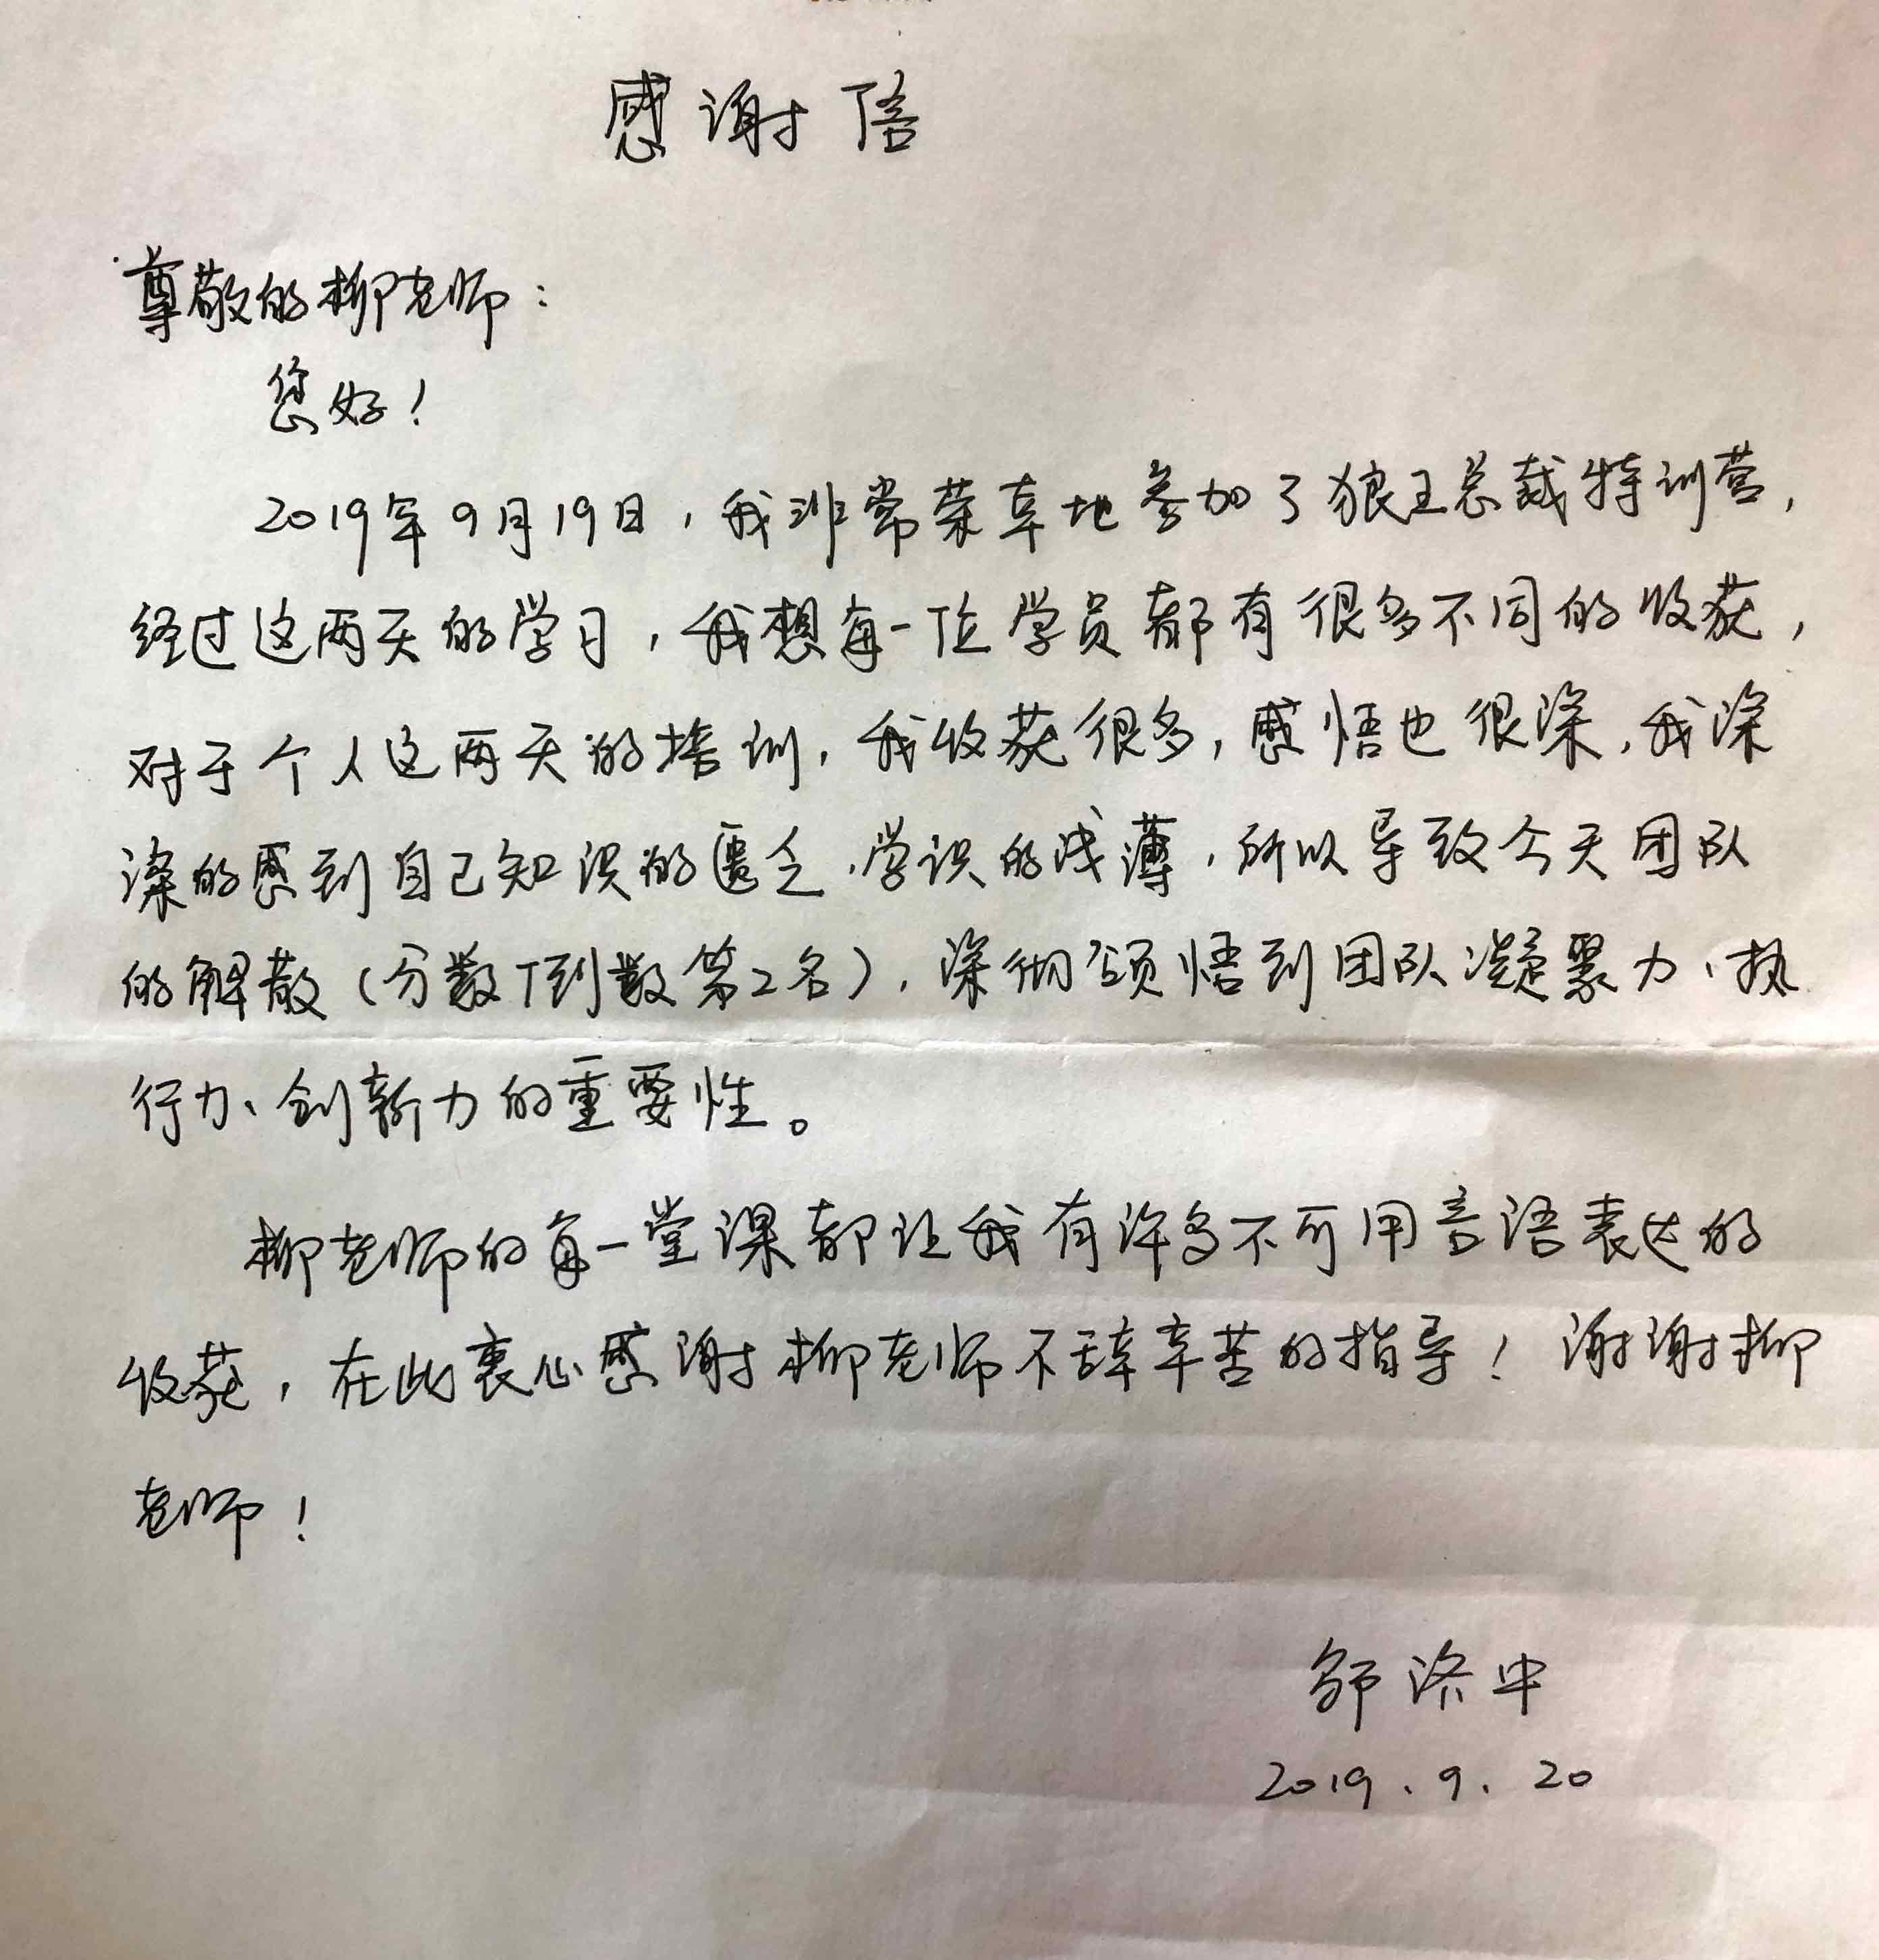 感谢信
尊敬的柳老师：
您好！
2019年9月19日，我非常荣幸地参加了狼王总裁特训营，
经过这两天的学习，我想每一位学员都有很多不同的收获，
对于个人这两天的培训，我收获很多，感悟也很深，我深
深的感到自己知识的匮乏、学识的浅薄，所以导致今天团队
的解散（分数倒数第2名），深彻领悟到团队凝聚力、执
行力、创新力的重要性。
柳老师的每一堂课都让我有许多不可用言语表达的
收获，在此衷心感谢柳老师不辞辛苦的指导！谢谢柳
老师！
邹济中
2019.9.20